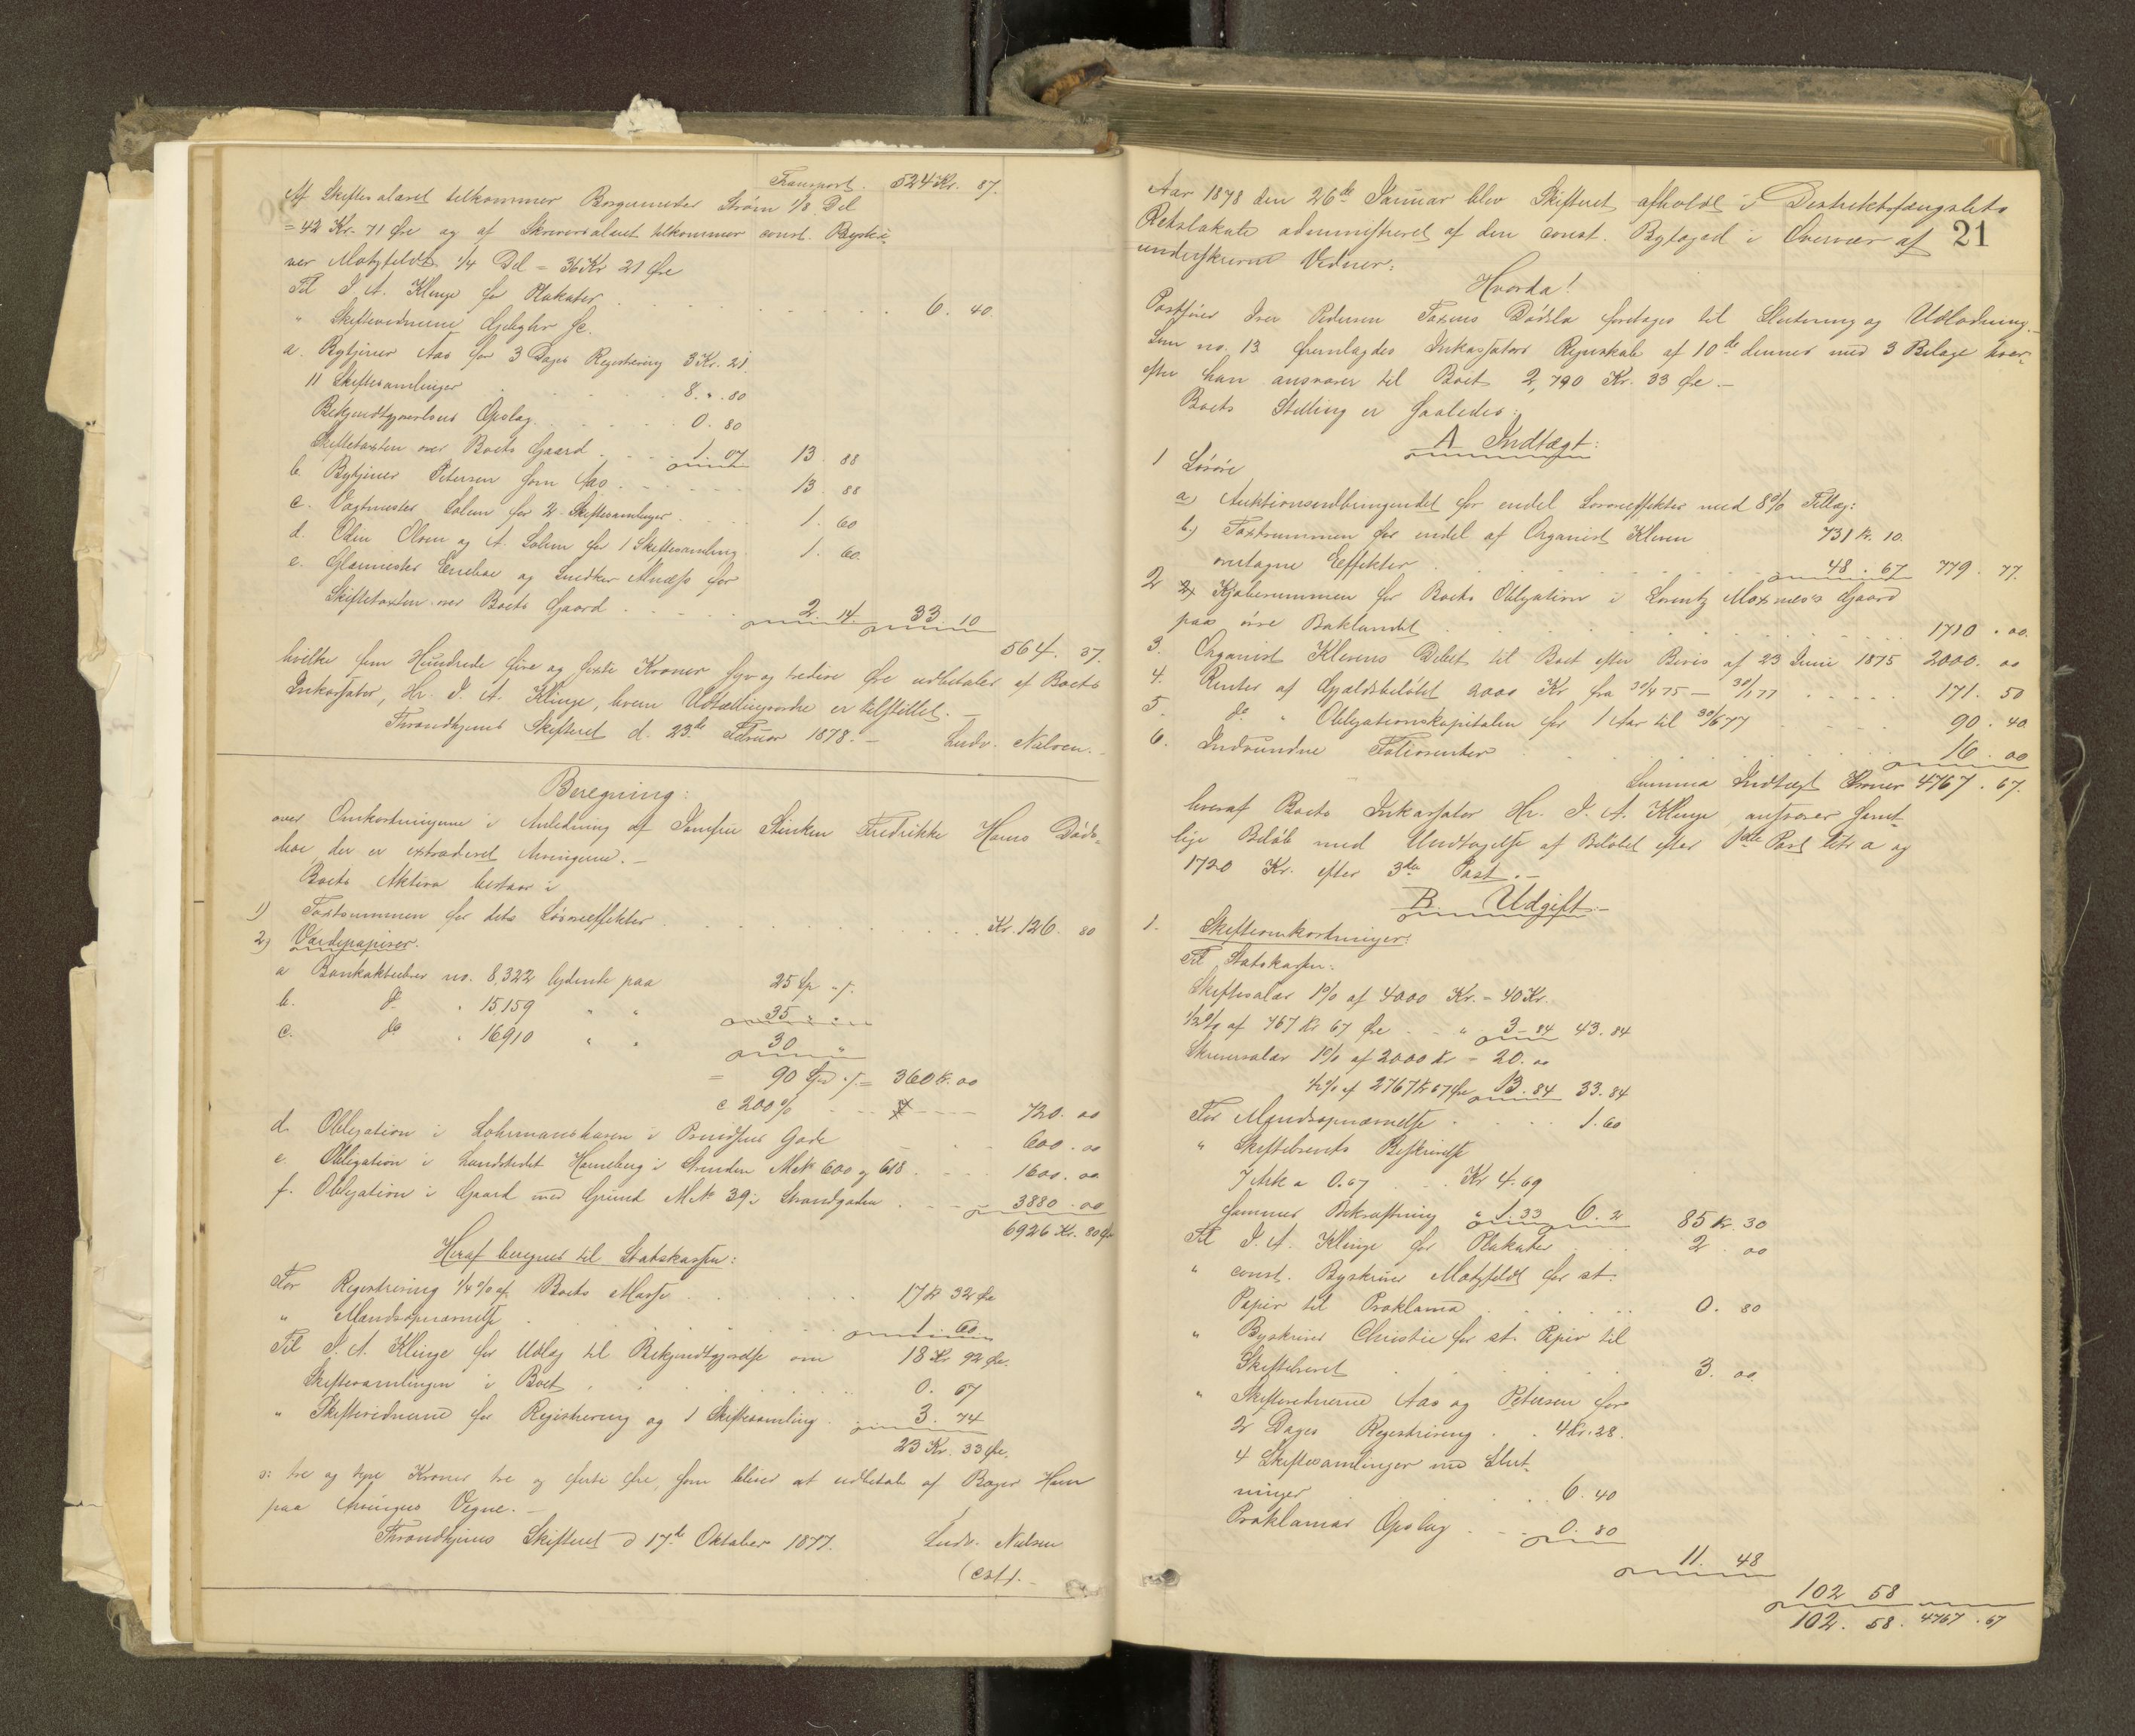 Transport. 524 Kr. 87.
Af Skiftesalæret tilkommer Borgermester Strøm 1/8 Del
= 42 Kr. 71 Øre og af Skriversalæret tilkommer const. Byskri-
ver Motzfeldt 1/4 Del = 36 Kr 21 Øre
Til I. A. Klinge for Plakater . . . 6. 40.
" Skiftevidnerne Gebyhr &c.
a. Bytjener Aas for 3 Dages Registrering 3 Kr. 21.
11 Skiftesamlinger . . . 8. " . 80
Bekjendtgjørelsens Opslag . . . 0. 80
Skiftetaxten over Boets Gaard . . . 1. 07 13. 88
b. Bytjener Petersen som Aas . . . 13. 88
c. Vagtmester Solem for 2 Skiftesamlinger . . . 1. 60
d. Odin Olsen og A. Solem for 1 Skiftesamling 1. 60.
e. Glarmester og Snedker for
Skiftetaxten over Boets Gaard . . . 2. 14. 33. 10
564. 37.
hvilke fem Hundrede fire og sexti Kroner syv og tredive Øre udbetales af Boets
Inkassator, Hr. I. A. Klinge, hvem Udtællingsordre er tilstillet. —
Throndhjems Skifteret d. 23de Februar 1878. — Ludv. Nielsen.
Beregning:
over Omkostningerne i Anledning af Jomfru Stinken Fredrikke Hams Døds-
boe, der er extraderet Arvingerne. —
Boets Aktiva bestaar i
1) Taxtsummen for dets Løsøreeffekter . . . Kr. 126. 80
2) Værdipapirer.
a Bankaktiebrev no. 8,322 lydende paa 25 Sp ./.
b. do " 15,159 " " 35 . . .
c. do " 16910 " " 30 "
= 90 Spd ./. = 360 Kr. 00
c 200% . . . 720. 00
d. Obligation i Lohrmannhaven i Gade . . . 600. 00
e. Obligation i Landstedet Hameberg i Strinden Mk 600 og 618 . . . 1600. 00
f. Obligation i Gaard med Grund Mk 39 i Strandgaden . . . 3880. 00
6926 Kr. 80 Øre
Heraf beregnes til Statskassen:
For Registrering 1/4% af Boets Masse . . . 17 Kr 32 Øre
" Mandsopnævnelse . . . 1. 60
Til I. A. Klinge for Udlæg til Bekjendtgjørelse om 18 Kr 92 Øre.
Skiftesamlingen i Boet . . . 0. 67
" Skiftevidnerne for Registrering og 1 Skiftesamling . . . 3. 74
23 Kr. 33 Øre.
o: tre og tyve Kroner tre og Øre, som bliver at udbetale af Bager Ham
paa Arvinges Vegne. —
Throndhjems Skifteret d 17de Oktober 1877. Ludv. Nielsen
(cst). —
21
Aar 1878 den 26de Januar blev Skifteret afholdt i Distriktsfængslets
Retslokale administreret af den const. Byfoged i Overvær af
underskrevne Vidner:
Hvorda!
Postfører Iver Pedersen Dødsbo foretages til Slutning og Udlodning. —
Som no. 13 fremlagdes Inkassators Regnskab af 10de dennes med 3 Bilage hvor-
efter han ansvarer til Boet 2,790 Kr. 33 Øre. —
Boets Stilling er saaledes:
A Indtægt:
1 Løsøre
a) Auktionsudbringendet for endel Løsøreeffekter med 8% Tillæg: 731 Kr. 10.
b) Taxtsummen for endel af Organist Kleven
modtagne Effekter . . . 48. 67 779. 77.
2 Kjøbesummen for Boets Obligation i Lorentz Moxness's Gaard
paa øvre Baklandet . . . 1710. 00.
3. Organist Klevens Debet til Boet efter Bevis af 23 Juni 1875 2000. 00
4. Renter af Gjældsbeløbet 2000 Kr fra 30/4 75 — 30/1 77 . . . 171. 50
5. do " Obligationskapitalen for 1 Aar til 30/6 77 . . . 90. 40
6. Indvundne Foliorenter . . . 16. 00
Summa Indtægt Kroner 4767. 67.
hvoraf Boets Inkassator Hr. I. A. Klinge ansvarer samt-
lige Beløb med Undtagelse af Beløbet efter 1ste Post litr a og
1720 Kr. efter 3die Post. —
B. Udgift. —
1. Skifteomkostninger:
Til Statskassen:
Skiftesalær 1% af 4000 Kr. = 40 Kr.
1/2% af 767 Kr 67 Øre . . " 3 - 84 43. 84
Skriversalær 1% af 2000 Kr = 20. 00
1/2% af 2767 Kr 67 Øre 13. 84 33. 84
For Mandsopnævnelse . . . 1. 60
" Skiftebrevets Beskrivelse
7 Ark a 0.67 . . Kr 4. 69
Sammes Bekræftning " 1. 33 6. 2 85 Kr. 30
Til I. A. Klinge for Plakater . . . 2. 00
" const. Byskriver Motzfeldt for st.
Papir til Proklama . . . 0. 80
" Byskriver Christie for st. Papir til
Skiftebrevet . . . 3. 00
" Skiftevidnerne Aas og Petersen for
2 Dages Registrering . . 4 Kr. 28.
4 Skiftesamlinger med Slut-
ninger . . . 6. 40
Proklamas Opslag . . . 0. 80
11. 48
102 58
102. 58. 4767. 67